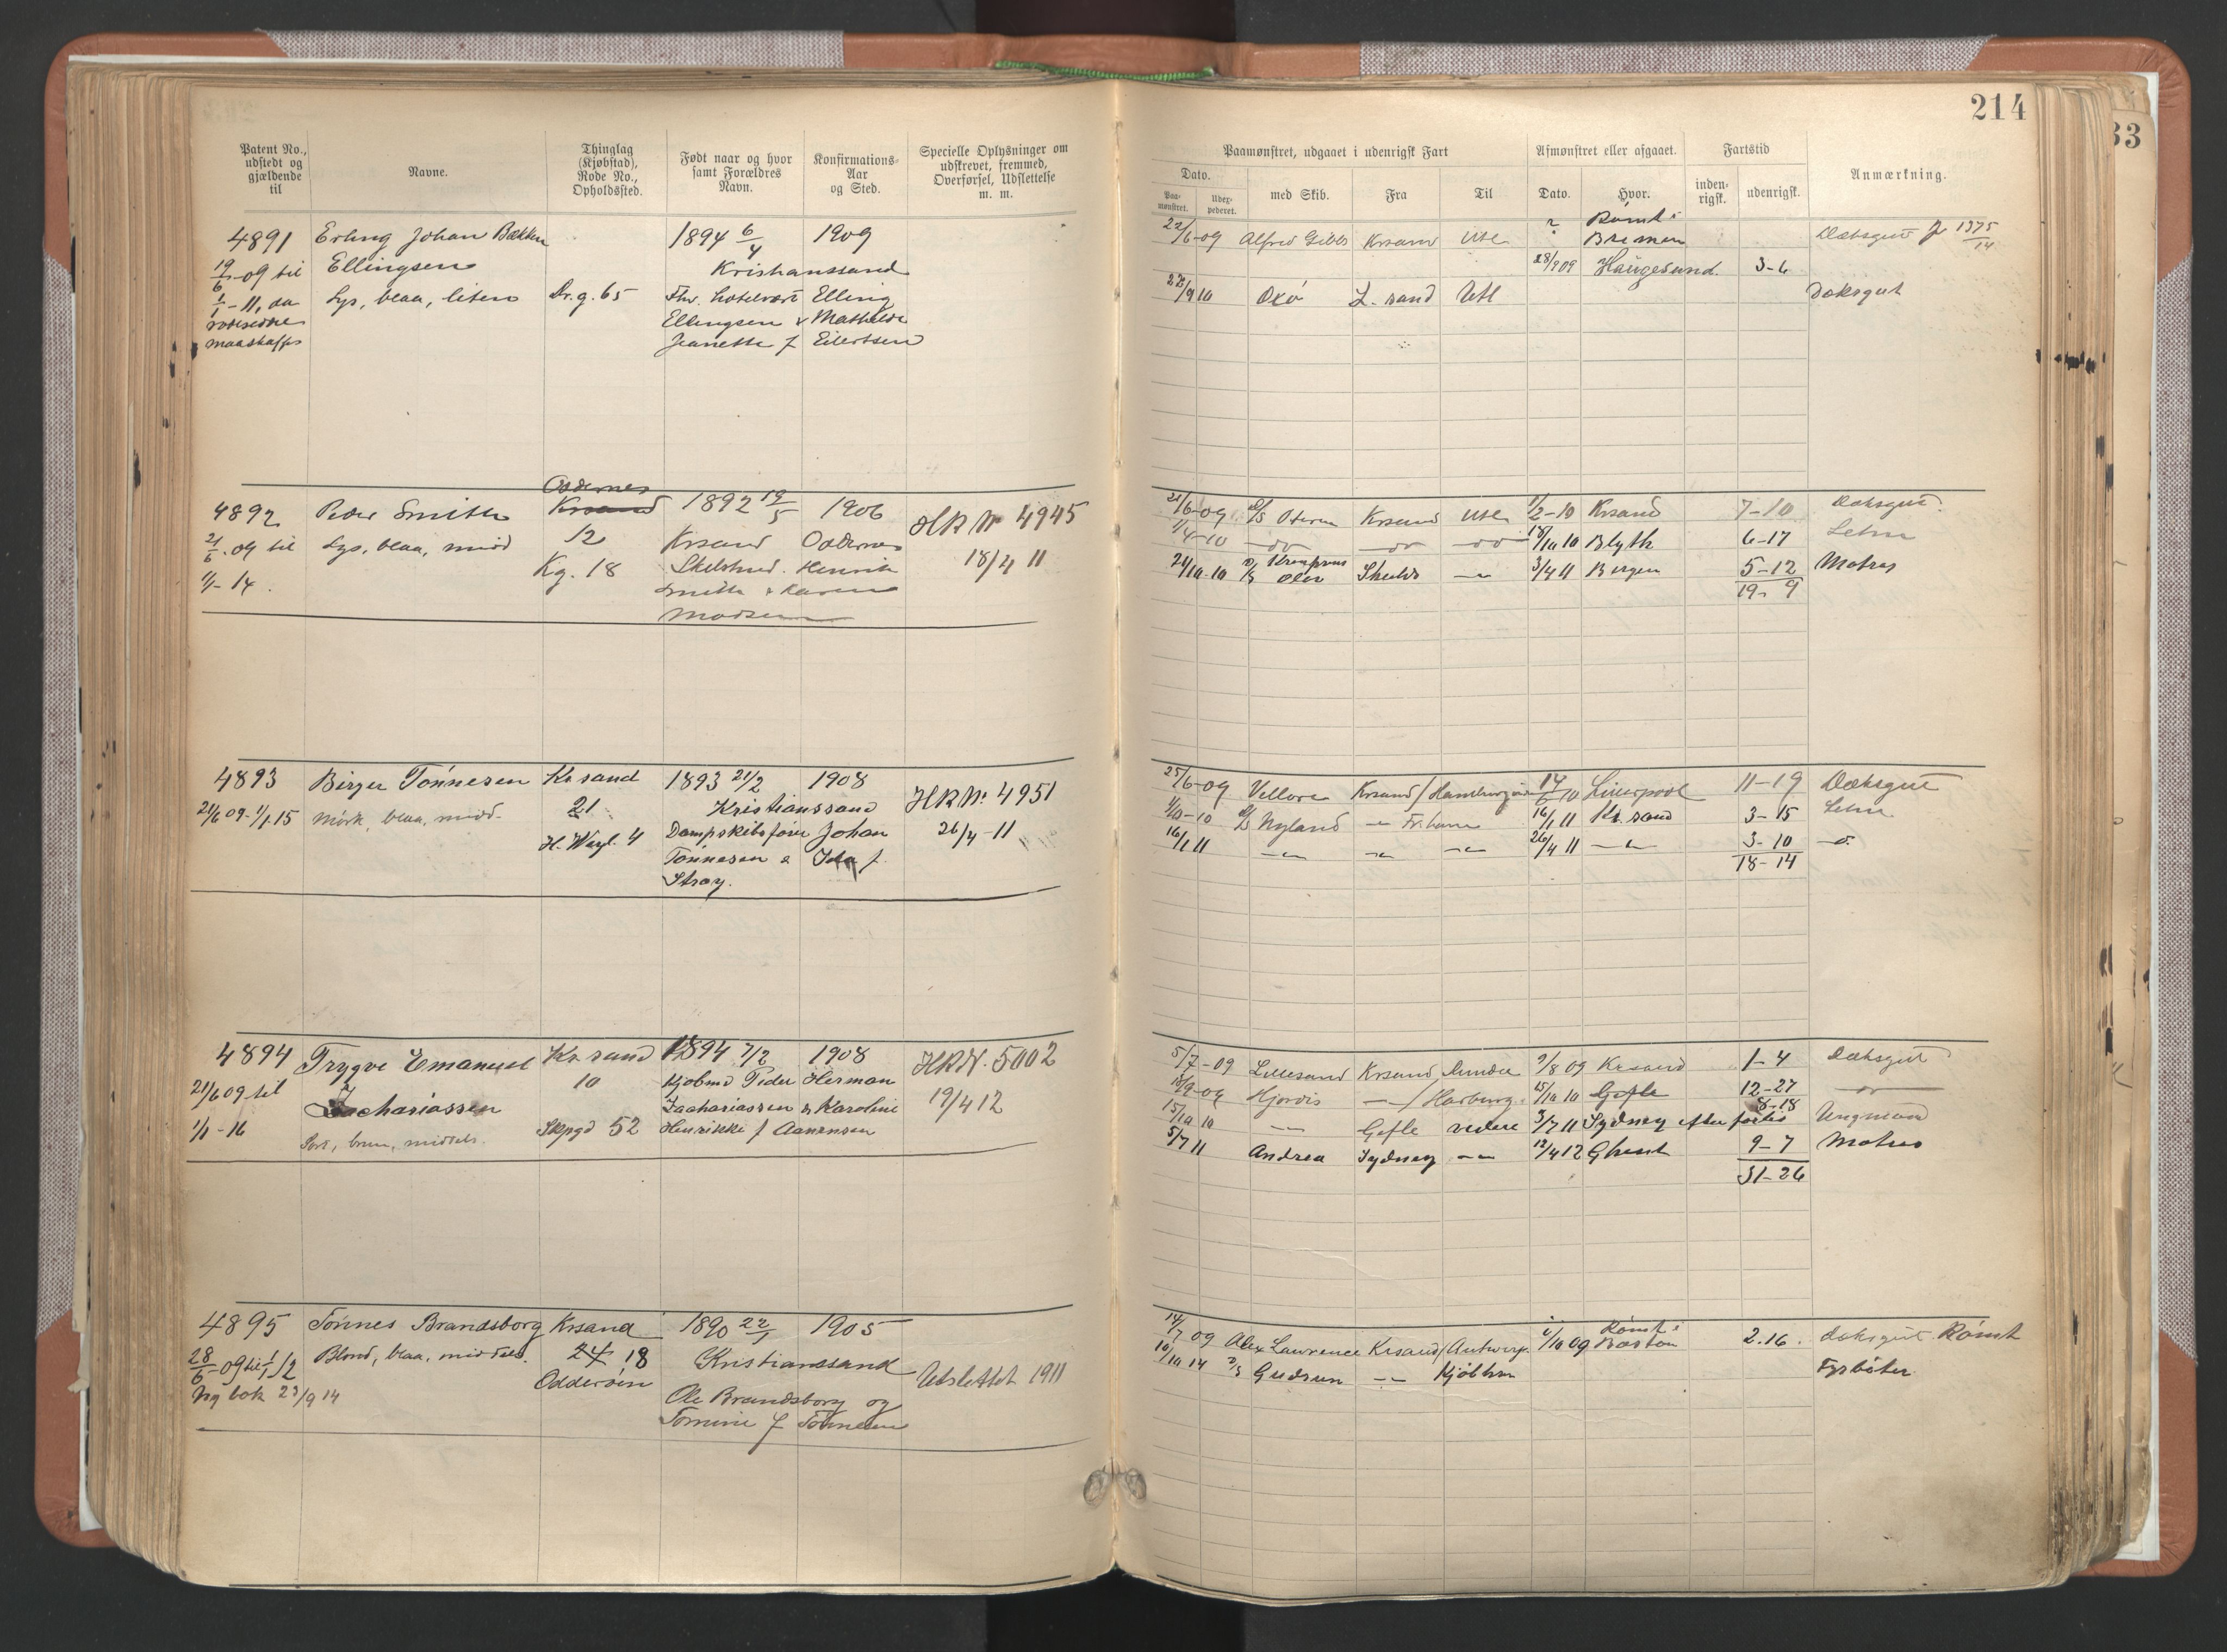 214
33
Patent No., udstedt og gjældende til
Navne.
Thinglag (Kjøbstad), Rode No., Opholdssted.
Født naar og hvor samt Forældres Navn.
Konfirmations-Aar og Sted.
Specielle Oplysninger om udskrevet, fremmed, Overførsel, Udslettelse m. m.
Paamønstret, udgaaet i udenrigsk Fart
Dato.
Paa-mønstret.
Udex-pederet.
med Skib.
Fra
Til
Afmønstret eller afgaaet.
Dato.
Hvor.
Fartstid
inden-rigsk.
udenrigsk.
Anmærkning.
4891 Erling Johan Bakken 1894 6/4 1909
19/6-09 til Ellingsen Kristianssand
1/1-11, da Lys, blaa, liten Dr.g. 65 Fhv. hotelvært Elling
Ellingsen & Mathilde
Jeanette f Eilertsen
22/6-09 Alfred Gibbs Krsand Utl ? Rømt i Bremen Dæksgut f 1375/14
28/9 09 Haugesund 3-6
22/9 10 Oxø L. sand Utl Dæksgut
4892 Peder Smith Oddernes Krsand 1892 19/5 1906 HR No 4945
21/6-09 til Lys, blaa, midd 12 Krsand Oddernes 18/4 11
1/1-14. Kg. 18 Henrik
Smith & Karen
Madsen
21/6-09 D/S Oteren Krsand Utl 1/2-10 Krsand 7-10 Dæksgut.
1/4-10 do do do 18/10 10 Blyth 6-17 Letm
24/10-10 D/S Kronprins Olav Shields 3/4 11 Bergen 5-12 Matros
19-9
4893 Birger Tönnesen Kr.sand 1893 21/2 1908 HR No. 4951
21/6 09-1/1-15 Mörk, blaa, midd. 21 Kristianssand 26/4-11
H. Wergl. 4 Dampskibsfører Johan
Tönnesen & Ida f.
Stray.
25/6-09 Vellore Krsand/Hamburg 17/6 10 Liverpool 11-19 Dæksgut
D/S Nyland 16/1 11 Kr.sand 3-15 Letm
16/1 11 26/4 11 3-10
18-14
4894 Trygve Emanuel Kr.sand 1894 7/2 1908 HRN. 5002
21/6 09 til Zachariassen 10 Kjøbmd Peder Herman 19/4 12
1/1-16 Sort, brun, middels. Skpgd 52 Zachariassen & Karoline
Henrikke f Aanensen
5/7-09 Lillesand Krsand Dundee 9/8 09 Krsand 1-4 Dæksgut
Hjørdis Harburg 15/10 10 Gefle 12-27
15/10 10 Gefle videre 3/7 11 Sydney efter forlis 8-18 Ungmand
5/7 11 Andrea Sydney 12/4 12 Ghent 9-7 Matros
31-26
4895 Tönnes Brandsborg Krsand 1890 22/1 1905
28/6-09 til 1/1-12 Blond, blaa, middels. 24 18 Kristianssand Utslettet 1911
Ny bok 23/9 14 Odderöen Ole Brandsborg og
Tomine f Tönnesen
14/7 09 Alex Lawrence Krsand/Antwerp. 2/10 09 Rømt i Boston 2.16. Dæksgut Rømt
10/10 14 D/S Gudrun Kjøbhvn Fyrböter